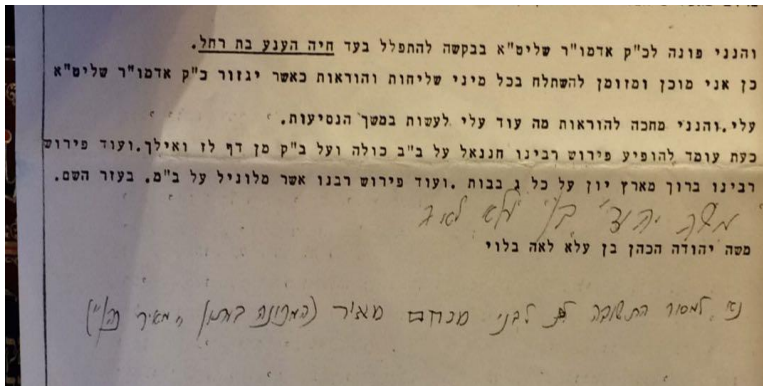 והנני פונה לכ"ק אדמו"ר שליט"א בבקשה להתפלל בעד חיה הענע בת רחל.
כן אני מוכן ומזומן להשתלח בכל מיני שליחות והוראות כאשר יגזור כ"ק אדמו"ר שליט"א
עלי.והנני מחכה להוראות מה עוד עלי לעשות במשך הנסיעות.
כעת עומד להופיע פירוש רבינו חננאל על ב"ב כולה ועל ב"ק מן דף לז ואילך.ועוד פירוש
רבינו ברוך מארץ יון על כל ג בבות .ועוד פירוש רבנו אשר מלוניל על ב"מ. בעזר השם.
משה יהודה הכהן בן עלא לאה בלוי
נא למסור התשובה לבני מנחם מאיר